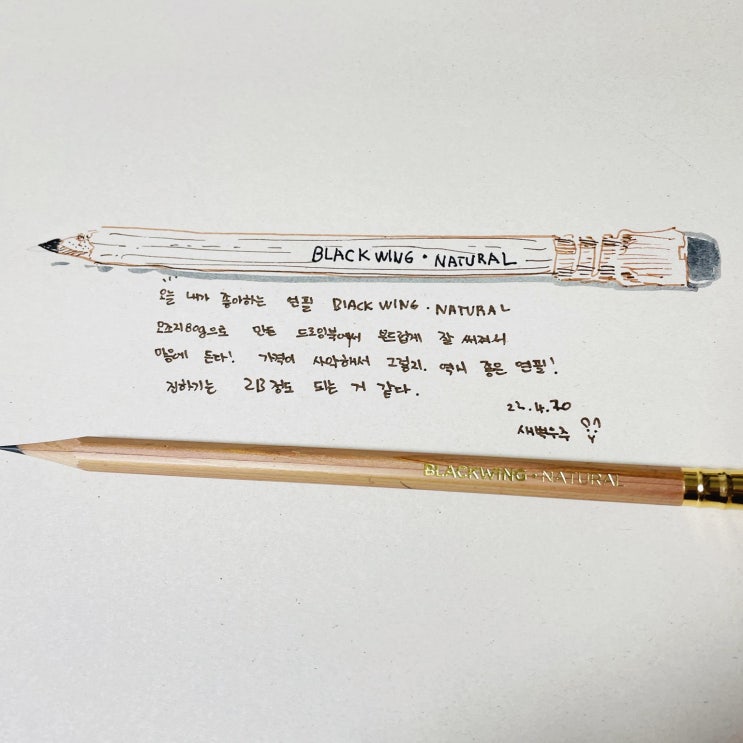 BLACKWING · NATURAL
오늘 내가 좋아하는 연필 BlACK WING · NATURAL
모조지80g으로 만든 드로잉북에서 부드럽게 잘 써져서
마음에 든다! 가격이 사악해서 그렇지. 역시 좋은 연필!
진하기는 2B정도 되는 거 같다.
22.4.30
새벽우주
BLACKWING · NATURAL